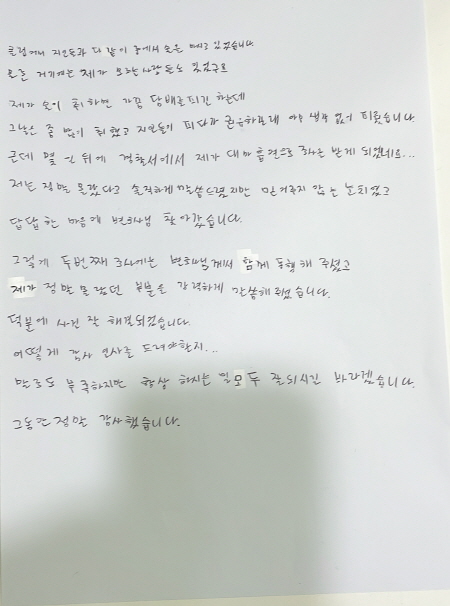 클럽에서 지인들과 다 같이 룸에서 술을 마시고 있었습니다.
물론 거기에는 제가 모르는 사람들도 있었구요
제가 술이 취하면 가끔 담배를 피긴 하는데
그날은 좀 많이 취했고 지인들이 피다가 권유하길래 아무 생각 없이 피웠습니다
근데 몇 일 뒤에 경찰서에서 제가 대마 흡연으로 조사를 받게 되었네요...
저는 정말 몰랐다고 솔직하게 말씀드렸지만 믿어주지 않는 눈치였고
답답한 마음에 변호사님 찾아갔습니다.
그렇게 두번째 조사에는 변호사님께서 함께 동행해 주셨고
제가 정말 몰랐던 부분을 강력하게 말씀해 주셨습니다.
덕분에 사건 잘 해결되었습니다.
어떻게 감사 인사를 드려야할지...
말로도 부족하지만 항상 하시는 일 모두 잘되시길 바라겠습니다.
그동안 정말 감사했습니다.